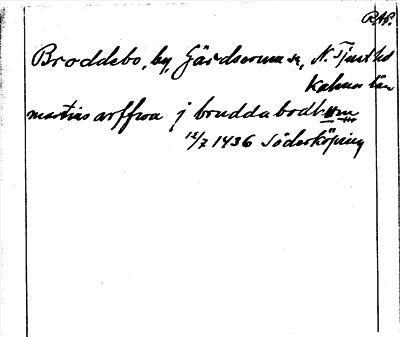 RAP.
Broddebo, by, Gärdserum sn, N. Tjust hd
Kalmar län
mattis arffwa j brudda bodhum
12/7 1436 Söderköping